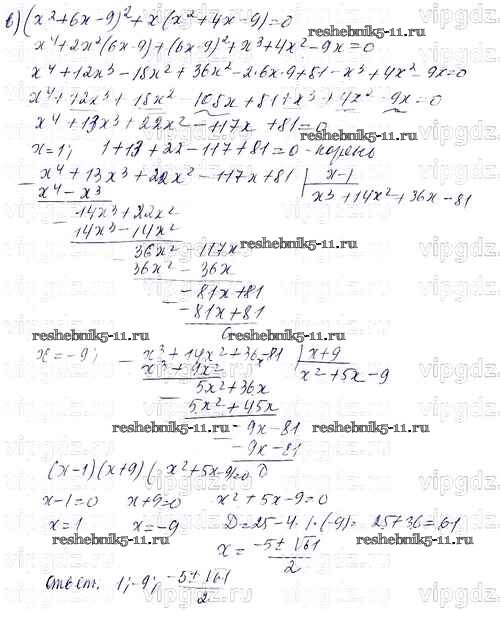 в) (x²+6x-9)²+x(x²+4x-9)=0
x⁴+2x²(6x-9)+(6x-9)²+x³+4x²-9x=0
x⁴+12x³-18x²+36x²-2·6x·9+81-x³+4x²-9x=0
x⁴+12x³+18x²-108x+81+x³+4x²-9x=0
x⁴+13x³+22x²-117x+81=0
x=1; 1+13+22-117+81=0-корень
x⁴+13x³+22x²-117x+81 | x-1
x⁴-x³ x³+14x²+36x-81
14x³+22x²
14x³-14x²
36x²-117x
reshebnik5-11.ru
36x²-36x
-81x+81
-81x+81
0
reshebnik5-11.ru reshebnik5-11.ru
x=-9; x³+14x²+36x-81 | x+9
x³+9x² x²+5x-9
5x²+36x
5x²+45x
-9x-81
reshebnik5-11.ru reshebnik5-11.ru
-9x-81
(x-1)(x+9)(x²+5x-9)=0
x-1=0 x+9=0 x²+5x-9=0
x=1 x=-9 D=25-4·1·(-9)=25+36=61
reshebnik5-11.ru reshebnik5-11.ru
x=-5±√61/2
Ответ: 1; -9; -5±√61/2
vipgdz